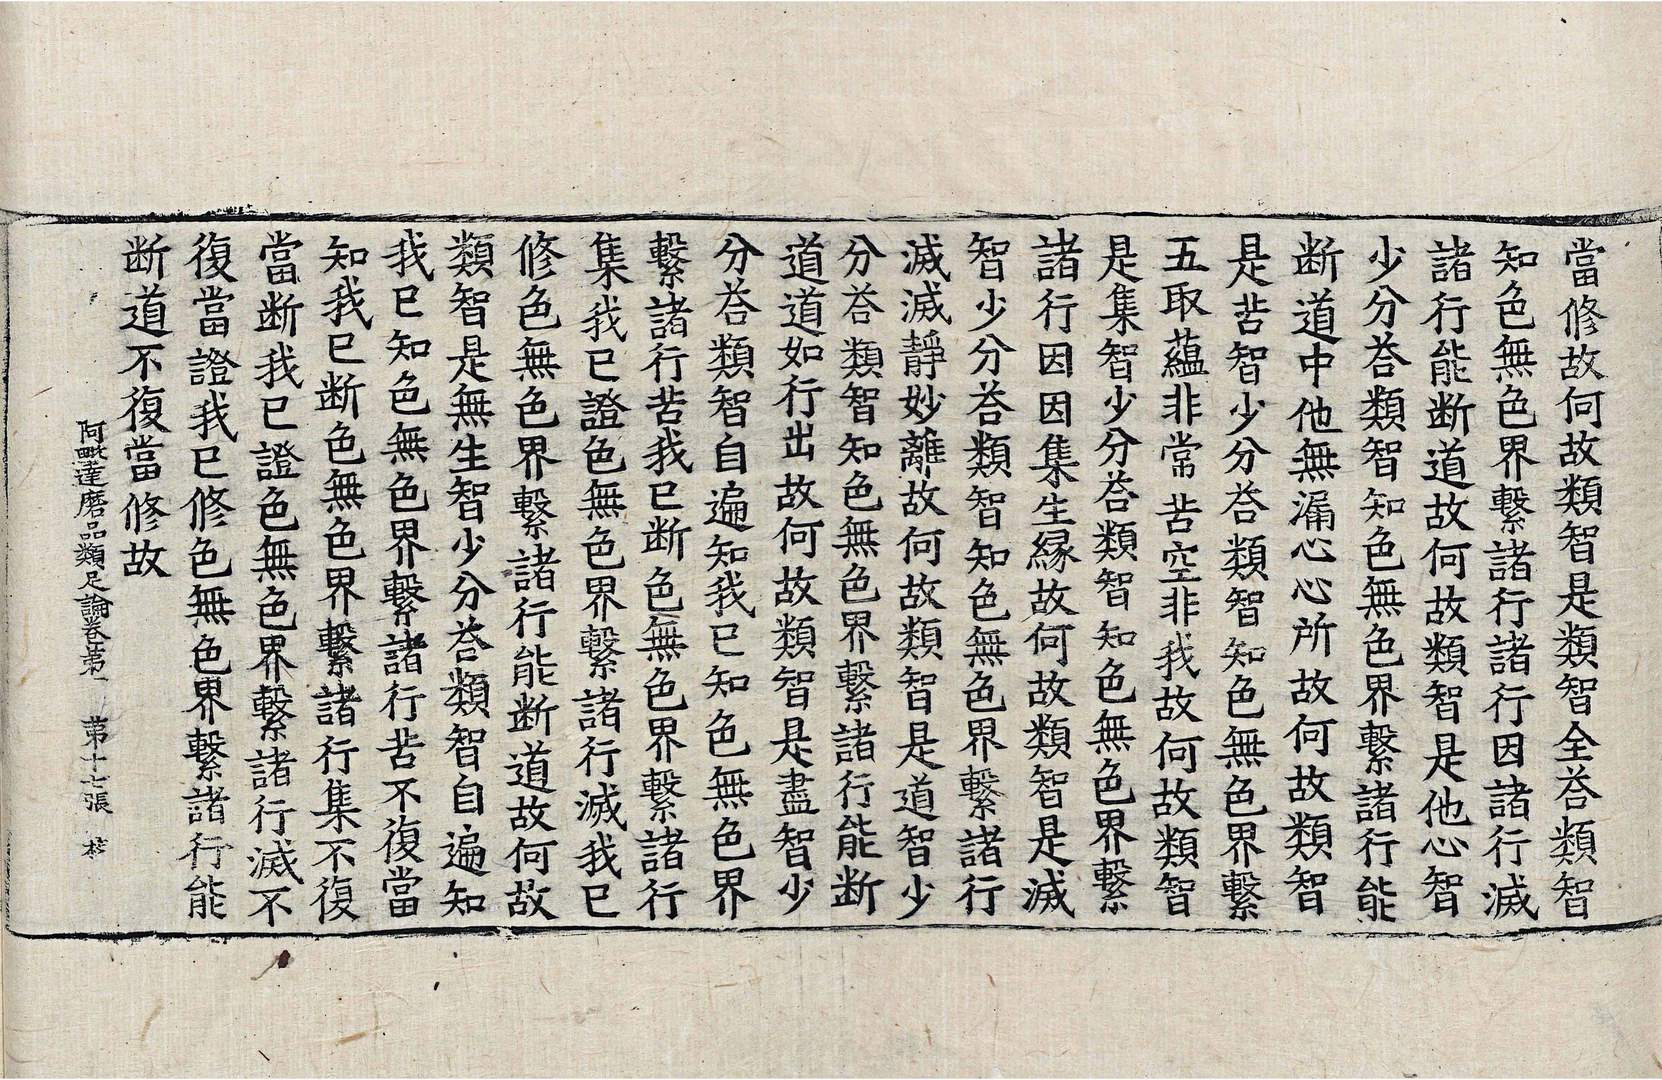 當修故何故類智是類智全荅類智
知色無色界繫諸行諸行因諸行滅
諸行能断道故何故類智是他心智
少分荅類智知色無色界繫諸行能
断道中他無漏心心所故何故類智
是苦智少分荅類智知色無色界繫
五取蘊非常苦空非我故何故類智
是集智少分荅類智知色無色界繫
諸行因因集生緣故何故類智是滅
智少分荅類智知色無色界繫諸行
滅滅靜妙離故何故類智是道智少
分荅類智知色無色界繫諸行能断
道道如行出故何故類智是盡智少
分荅類智自遍知我已知色無色界
繫諸行苦我已断色無色界繫諸行
集我已證色無色界繫諸行滅我已
修色無色界繫諸行能断道故何故
類智是無生智少分荅類智自遍知
我已知色無色界繫諸行苦不復當
知我已断色無色界繫諸行集不復
當断我已證色無色界繫諸行滅不
復當證我已修色無色界繫諸行能
断道不復當修故
阿毗達磨品類足論卷第一 第十七張